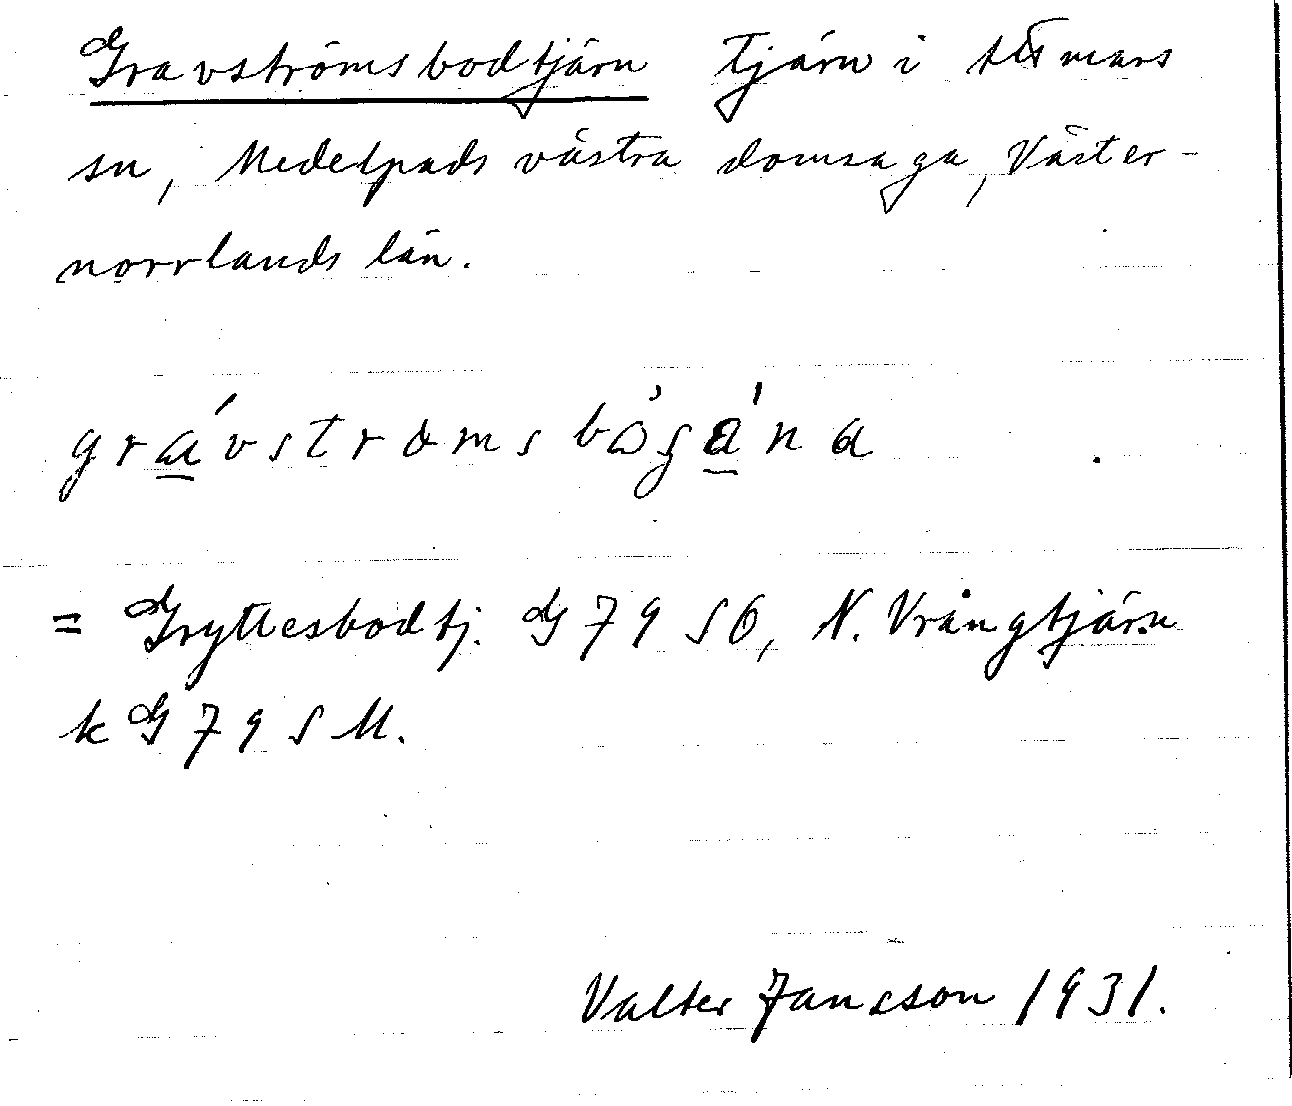 Gravströmsbodtjärn Tjärn i Attmars
sn, Medelpads västra domsaga, Väster-
norrlands län.
= Gryttesbodtj. G 79 SÖ, N. Vrångtjärn
k G 79 S M.
Valter Jansson 1931.